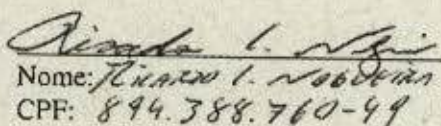 Ricardo I. Nog
Nome: RICARDO I. NOGUEIRA
CPF: 894.388.760-49